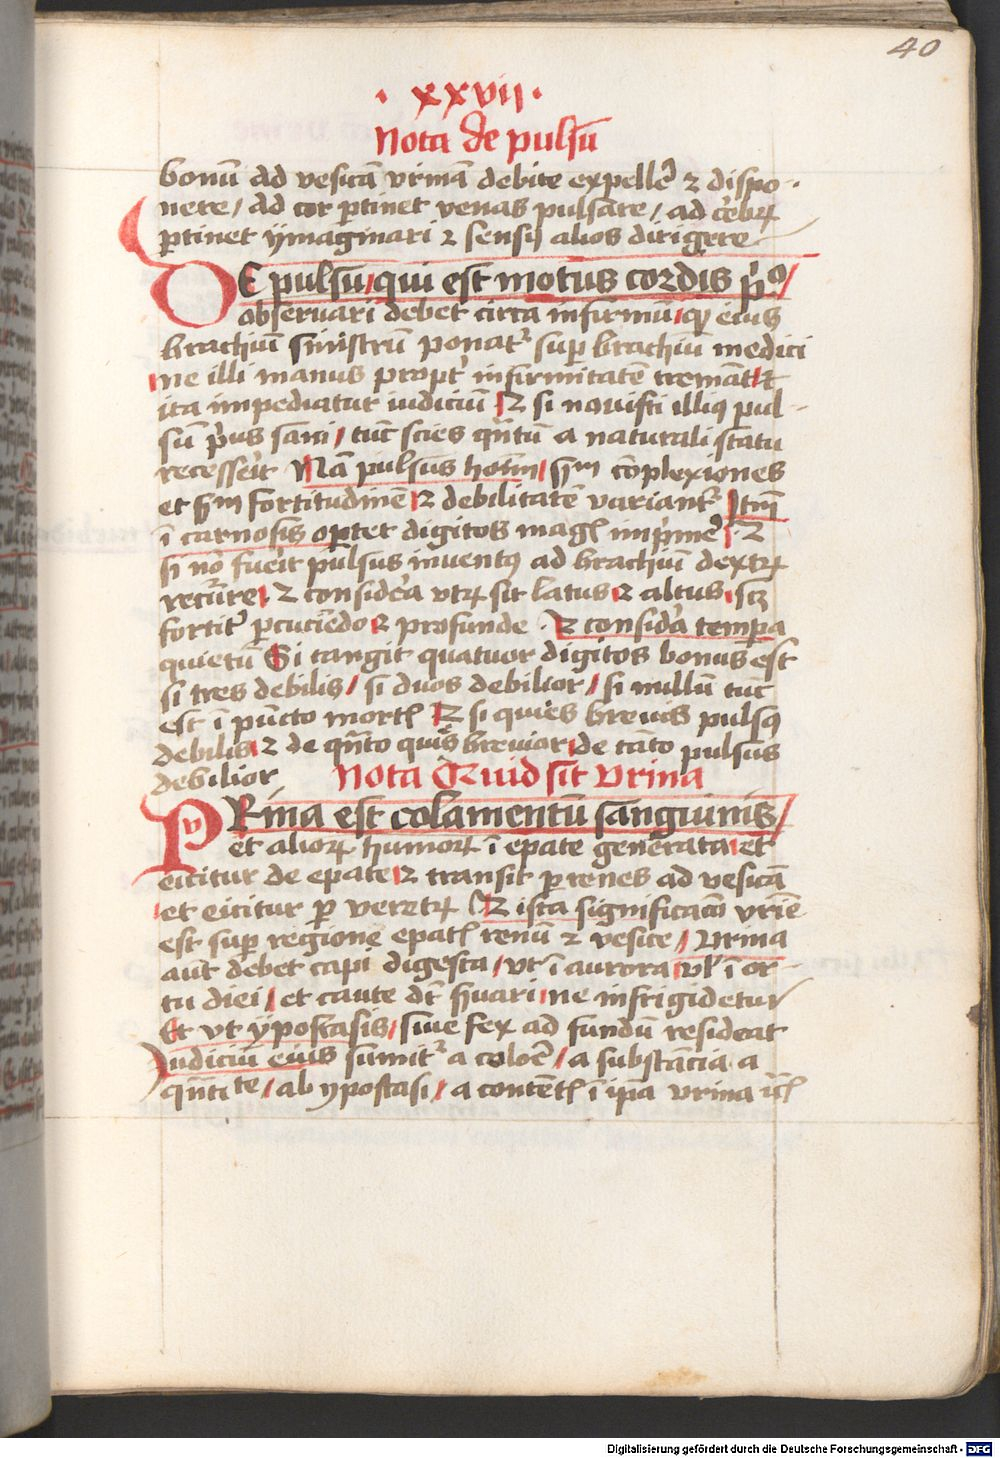 40
· xxvij ·
Nota de pulsu
bonū ad vesicā vrinā debite expellēˀ ⁊ dispo-
nere / ad cor ꝑtinet venas pulsare / ad cˀebrꝝ
ꝑtinet ymaginari ⁊ sensꝯ alios dirigere
DE pulsu / qui est motus cordis pˀo /
observari debet circa infirmū / qꝫ eius
brachiū sinistrū ponatˀ suꝑ brachiū medici
ne illi manus proptˀ infirmitatē tremāt / ⁊
ita impediatur iudiciū / ⁊ si novisti illiꝯ pul-
sū pˀus sani / tūc scies qn̄tū a naturali statu
recesseˀit Nā pulsus hoīm / sᵐ cōplexiones
et sᵐ fortitudinē ⁊ debilitatē variantˀ Itm̄
ī carnosis oꝑtet digitos magꝭ impˀmeˀ / ⁊
si nō fueˀit pulsus inventꝯ ad brachiū dextrꝝ
recurˀre / ⁊ considˀa vtrꝝ sit latus ⁊ altus / scꝫ
fortitˀ ꝑcuciēdo ⁊ profunde · ⁊ considˀa tempa
quietū Si tangit quatuor digitos bonus est
si tres debilis / si duos debilior / si nullū tūc
est ī pūcto mortꝭ ⁊ si quies brevis pulsꝯ
debilis / ⁊ de qn̄to quis brevior / de tāto pulsus
debilior Nota Quid sit Vrina
VRina est colamentū sanguinis /
et aliorꝝ humorꝝ ī epate generata / et
eicitur de epate ⁊ transit ꝑ renes ad vesicā
/ et eicitur ꝑ veretrꝝ ⁊ ista significacō vrīe
est suꝑ regione epatꝭ renū ⁊ vesice / Vrina
aūt debet capi digesta / vt ī aurora / vl̄ ī or-
tu diei / et caute dꝫ sˀuari / ne infrigidetur
Et vt ypostasis / sive fex ad fundū resideat
Iudiciū eius sumitˀ a coloˀe / a substācia a
qn̄tite / ab ypostasi / a contētꝭ ī ipa vrina
Digitalisierung gefördert durch die Deutsche Forschungsgemeinschaft - DFG